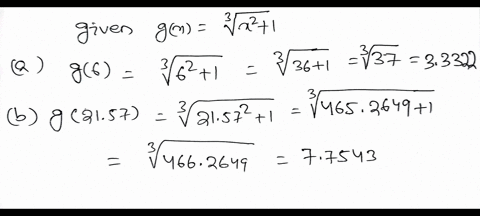 given g(x) = ∛(x²+1)
(a) g(6) = ∛(6²+1) = ∛(36+1) = ∛37 = 3.3322
(b) g(21.57) = ∛(21.57²+1) = ∛(465.2649+1)
= ∛466.2649 = 7.7543